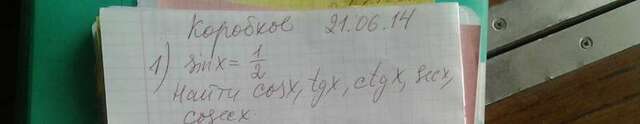 Коробков 21.06.14
1) sin x = 1/2
Найти cosx, tgx, ctgx, secx,
cosecx